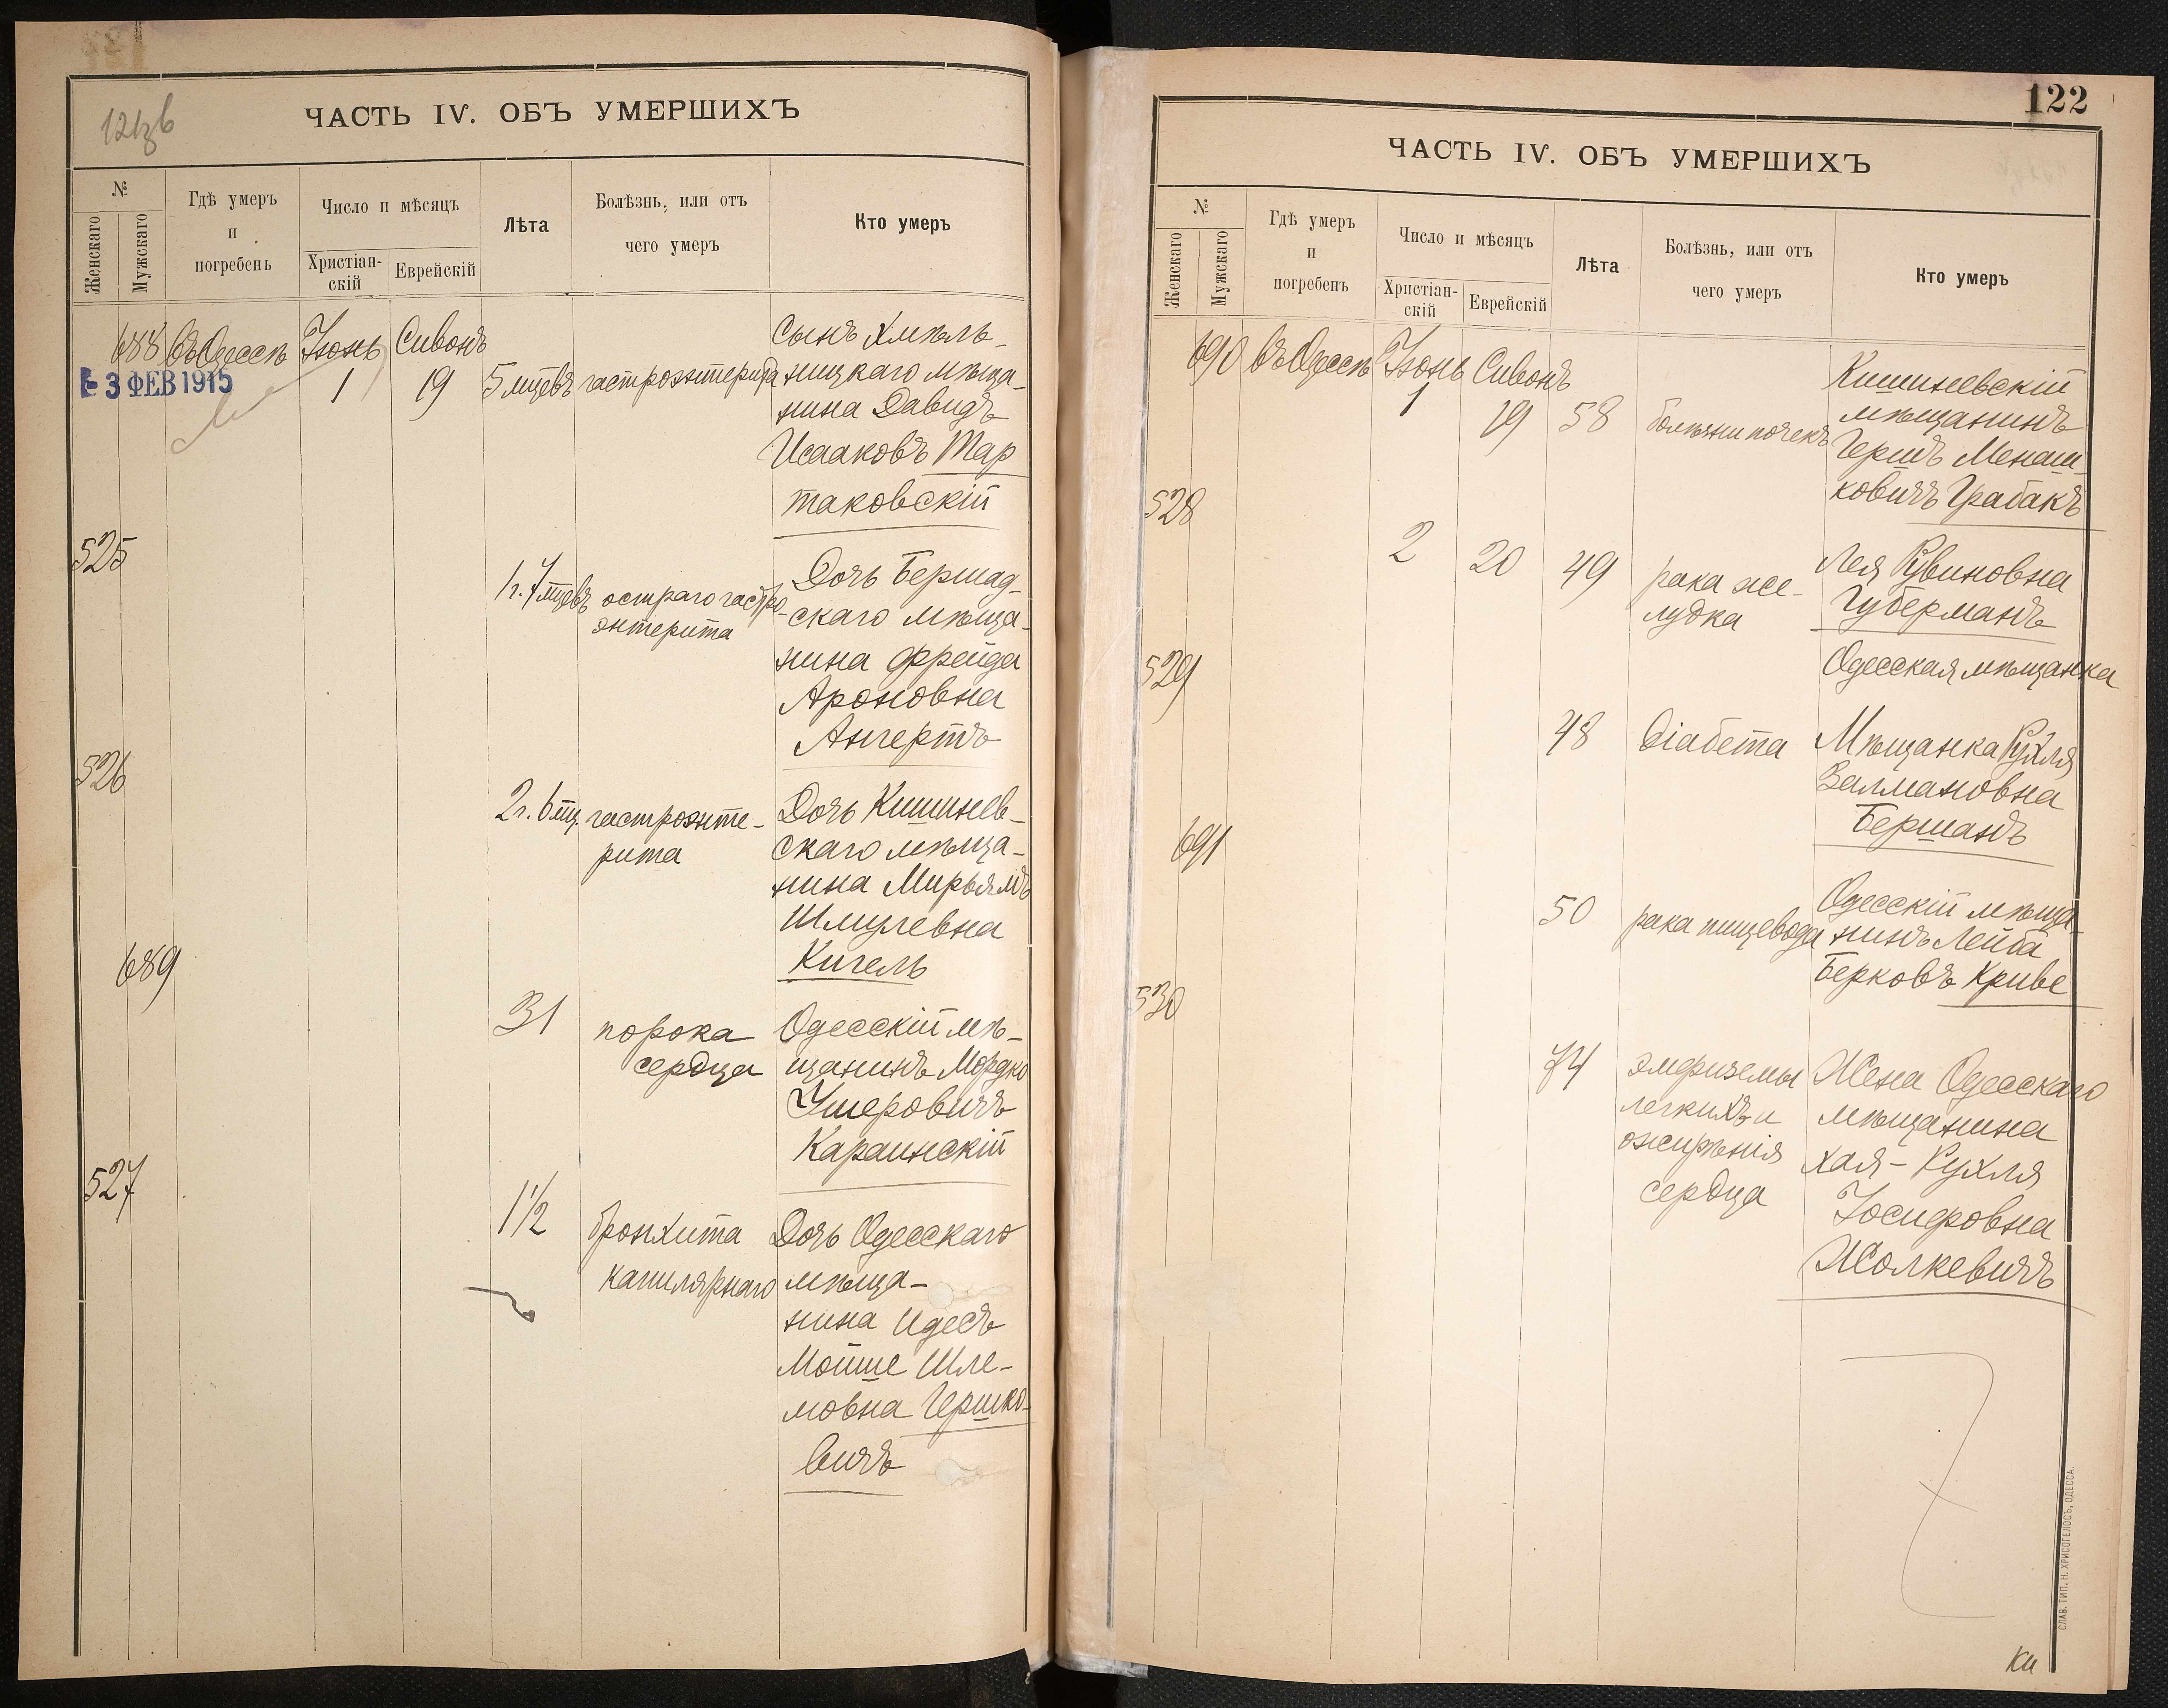 121зв
ЧАСТЬ IV. ОБЪ УМЕРШИХЪ
№
Женскаго
Мужскаго
Гдѣ умеръ
и
погребенъ
Число и мѣсяцъ
Христіан-
скій
Еврейскій
Лѣта
Болѣзнь, или отъ
чего умеръ
Кто умеръ
688 въ Одессѣ Іюнь Сивонъ
3 ФЕВ 1915
1 19 5 мцевъ гастроэнтерита
Сынъ Хмѣль-
ницкаго мѣща-
нина Давидъ
Исааковъ Тар
таковскій
525
1 г. 7 мцевъ остраго гастро-
энтерита
Дочь Бершад-
скаго мѣща-
нина Фрейда
Ароновна
Ангертъ
526
2 г. 6 мц. гастроэнте-
рита
Дочь Кишинев-
скаго мѣща-
нина Мирьямъ
Шмулевна
Кигель
689
31 порока
сердца
Одесскій мѣ-
щанинъ Мордко
Ушеровичъ
Караинскій
527
1 1/2 бронхита
капилярнаго
Дочь Одесскаго
мѣща-
нина Идесъ
Мойше Шле-
мовна Гершко-
вичъ
122
ЧАСТЬ IV. ОБЪ УМЕРШИХЪ
№
Женскаго
Мужскаго
Гдѣ умеръ
и
погребенъ
Число и мѣсяцъ
Христіан-
скій
Еврейскій
Лѣта
Болѣзнь, или отъ
чего умеръ
Кто умеръ
690 въ Одессѣ Іюнь Сивонъ
1 19 58 болѣзни почекъ
Кишиневскій
мѣщанинъ
Гершъ Менаш-
ковичъ Грабакъ
528
2 20 49 рака же-
лудка
Лея Рувиновна
Губерманъ
Одесская мѣщанка
529
48 діабета
Мѣщанка Рухля
Залмановна
Бершанъ
691
50 рака пищевода
Одесскій мѣща-
нинъ Лейба
Берковъ Криве
530
74 эмфиземы
легкихъ и
ожирѣнія
сердца
Жена Одесскаго
мѣщанина
Хая-Рухля
Іосифовна
Жолкевичъ
СЛАВ. ТИП. Н. ХРИСОГЕЛОСЪ, ОДЕССА.